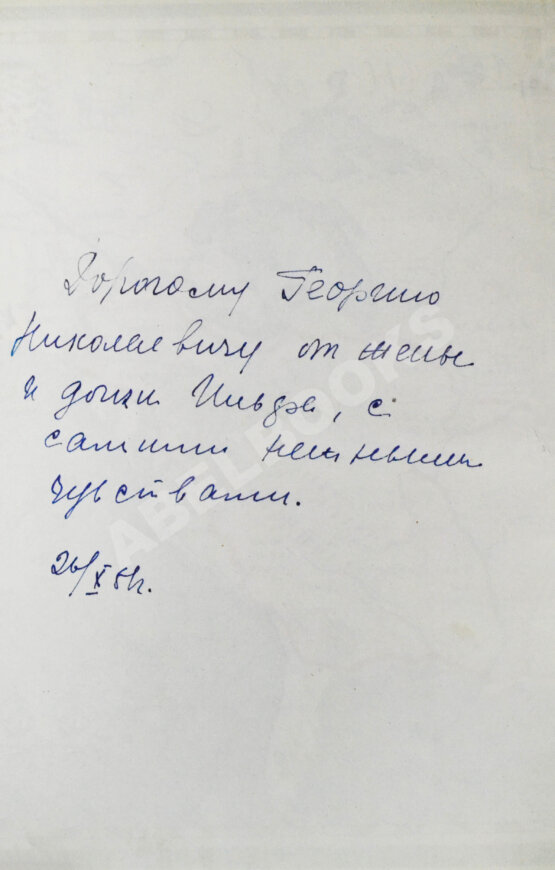 Дорогому Георгию
Николаевичу от жены
и дочки Ильфа, с
самыми нежными
чувствами.
26/X 81г.
ABELBOOKS